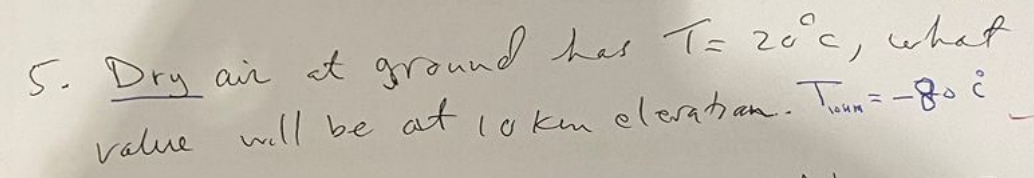 5. Dry air at ground has T= 20°c, what
value will be at 10 km elevation. T10km = -80 °c